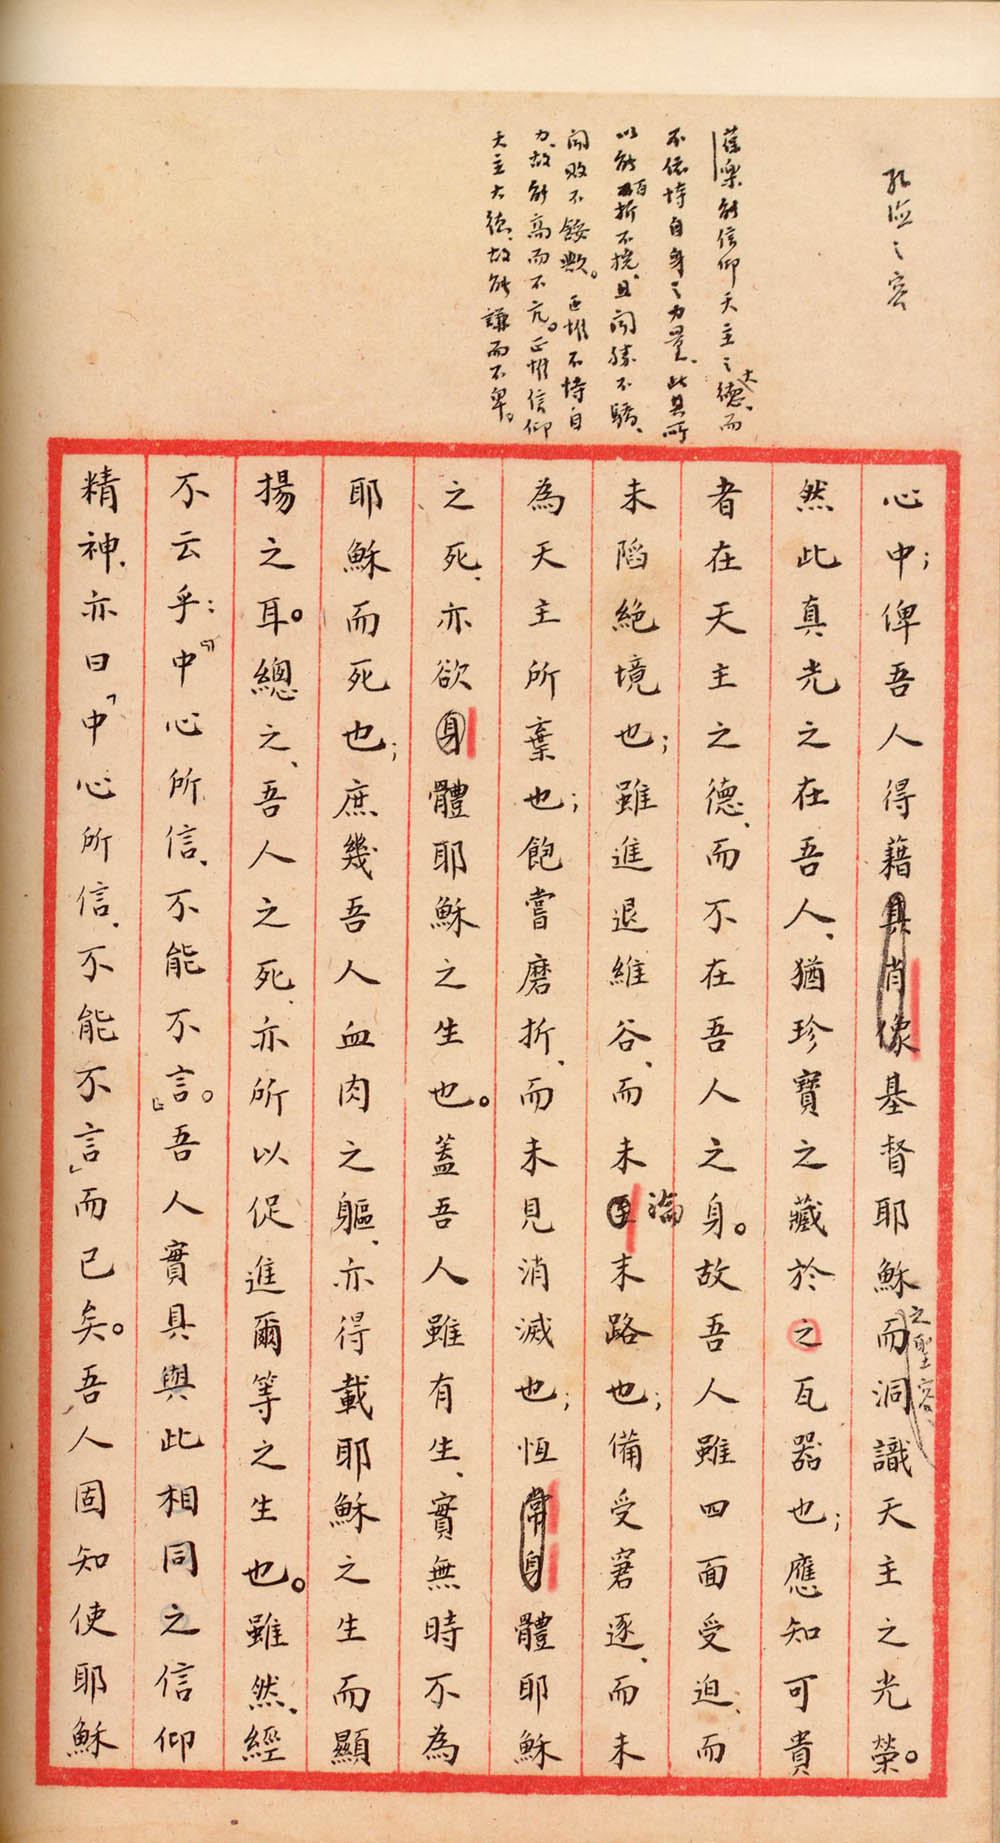 心中；俾吾人得藉具肖像基督耶穌而洞識天主之光榮。
之聖容、
然此真光之在吾人、猶珍寶之藏於之瓦器也；應知可貴
者在天主之德、而不在吾人之身。故吾人雖四面受迫、而
未陷絕境也；雖進退維谷、而未至末路也；備受窘逐、而未
淪
為天主所棄也；飽嘗磨折、而未見消滅也；恆常身體耶穌
之死、亦欲身體耶穌之生也。蓋吾人雖有生、實無時不為
耶穌而死也；庶幾吾人血肉之軀、亦得載耶穌之生而顯
揚之耳。總之、吾人之死、亦所以促進爾等之生也。雖然、經
不云乎：『中心所信、不能不言。』吾人實具與此相同之信仰
精神、亦曰「中心所信、不能不言」而已矣。吾人固知使耶穌
之容
葆樂能信仰天主之大德、而
不依恃自身之力量、此其所
以能百折不撓、且聞勝不驕、
聞敗不餒歟。正惟不恃自
力、故能高而不亢。正惟信仰
天主大德、故能謙而不卑。